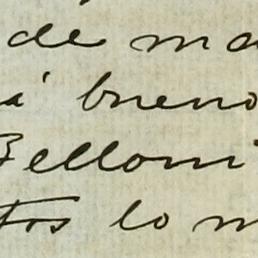 de ma
á bueno
Bellomi
tos lo m